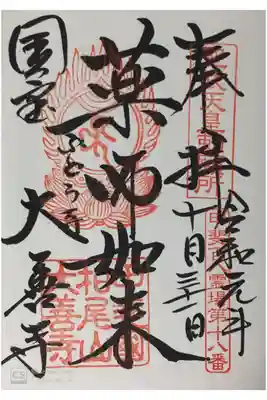 奉拝
令和元年
十月三十一日
甲斐霊場第十八番
薬師如来
国宝
ぶどう寺
大善寺
柏尾山
大善寺
CS